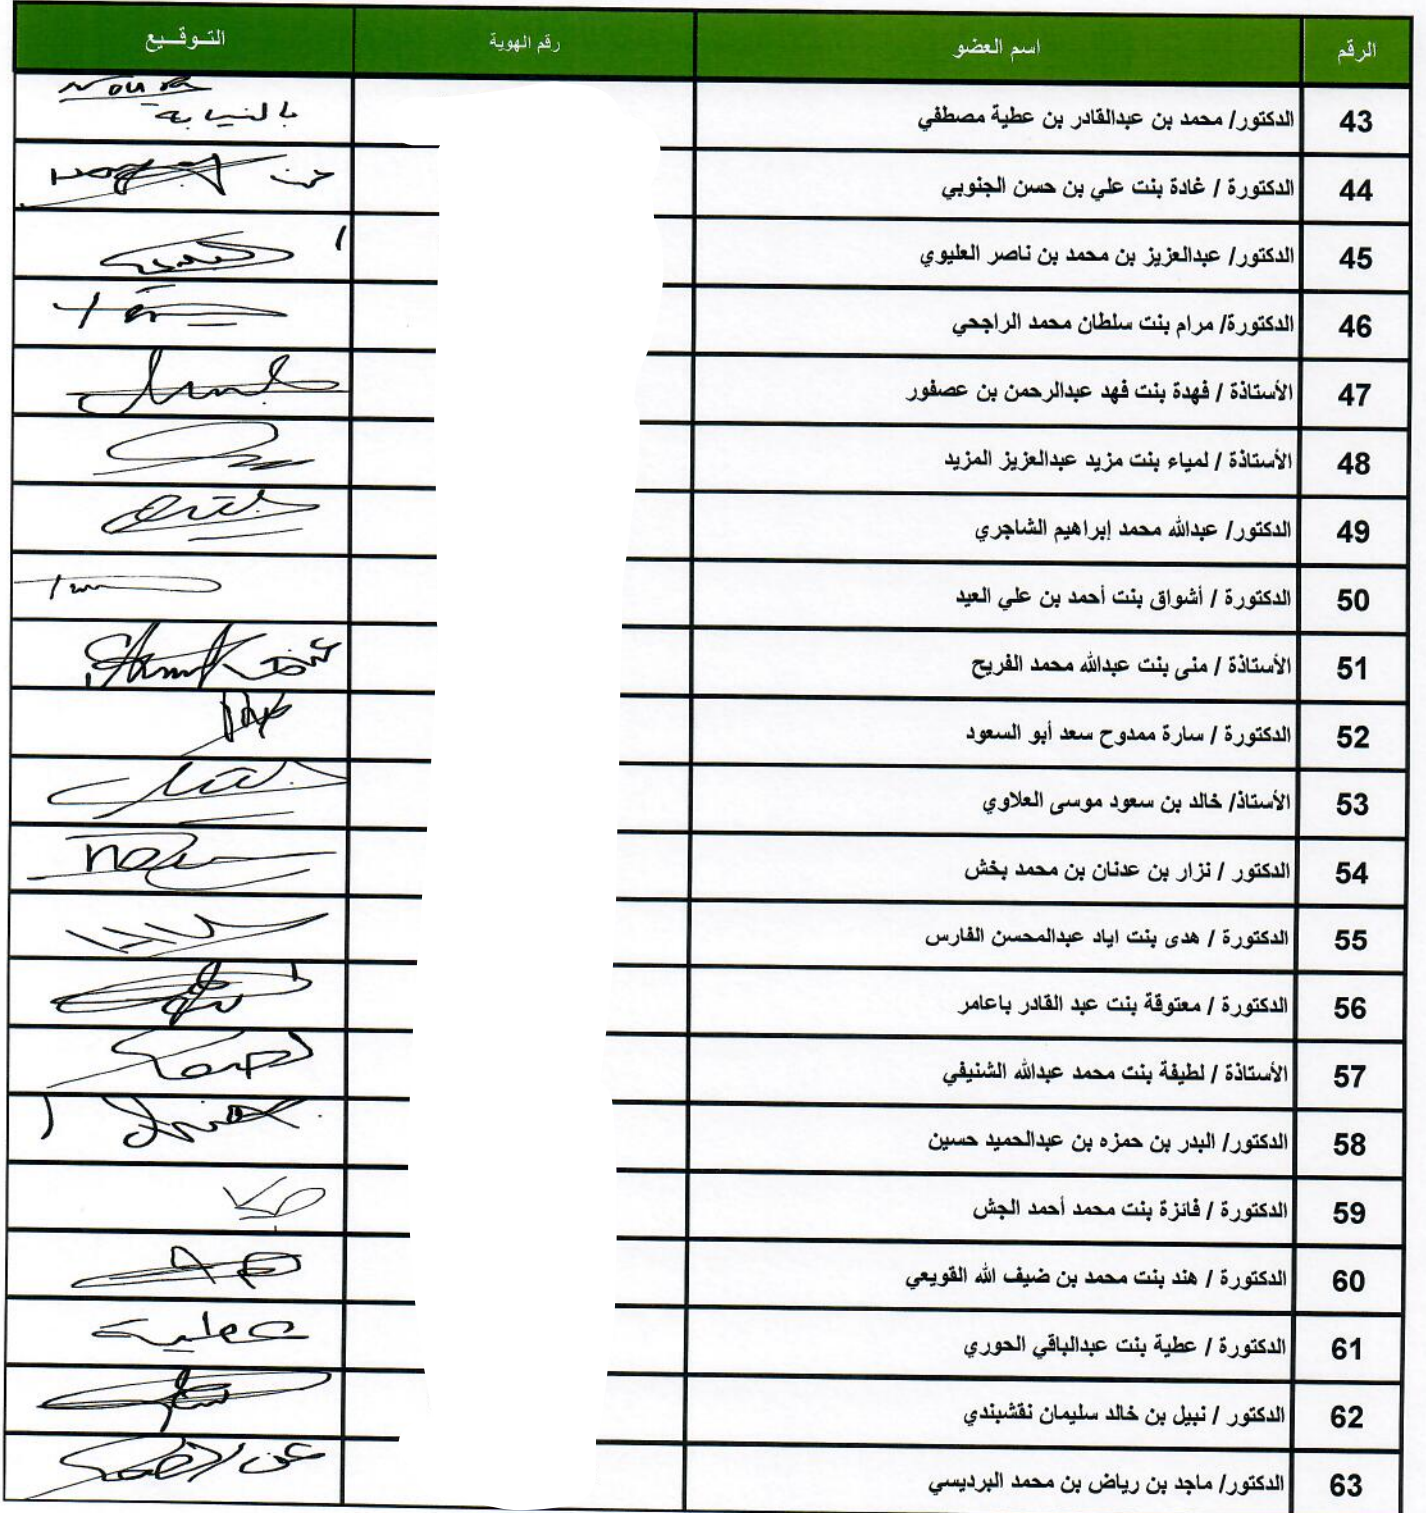 الرقم اسم العضو رقم الهوية التوقيع
43 الدكتور/ محمد بن عبدالقادر بن عطية مصطفي Noura
بالنيابة
44 الدكتورة / غادة بنت علي بن حسن الجنوبي عن
45 الدكتور/ عبدالعزيز بن محمد بن ناصر العليوي
46 الدكتورة/ مرام بنت سلطان محمد الراجحي
47 الأستاذة / فهدة بنت فهد عبدالرحمن بن عصفور
48 الأستاذة / لمياء بنت مزيد عبدالعزيز المزيد
49 الدكتور/ عبدالله محمد إبراهيم الشاجري
50 الدكتورة / أشواق بنت أحمد بن علي العيد
51 الأستاذة / منى بنت عبدالله محمد الفريح
52 الدكتورة / سارة ممدوح سعد أبو السعود
53 الأستاذ/ خالد بن سعود موسى العلاوي
54 الدكتور / نزار بن عدنان بن محمد بخش
55 الدكتورة / هدى بنت اياد عبدالمحسن الفارس
56 الدكتورة / معتوقة بنت عبد القادر باعامر
57 الأستاذة / لطيفة بنت محمد عبدالله الشنيفي
58 الدكتور/ البدر بن حمزه بن عبدالحميد حسين
59 الدكتورة / فائزة بنت محمد أحمد الجش
60 الدكتورة / هند بنت محمد بن ضيف الله القويعي
61 الدكتورة / عطية بنت عبدالباقي الحوري عطية
62 الدكتور / نبيل بن خالد سليمان نقشبندي
63 الدكتور/ ماجد بن رياض بن محمد البرديسي عن